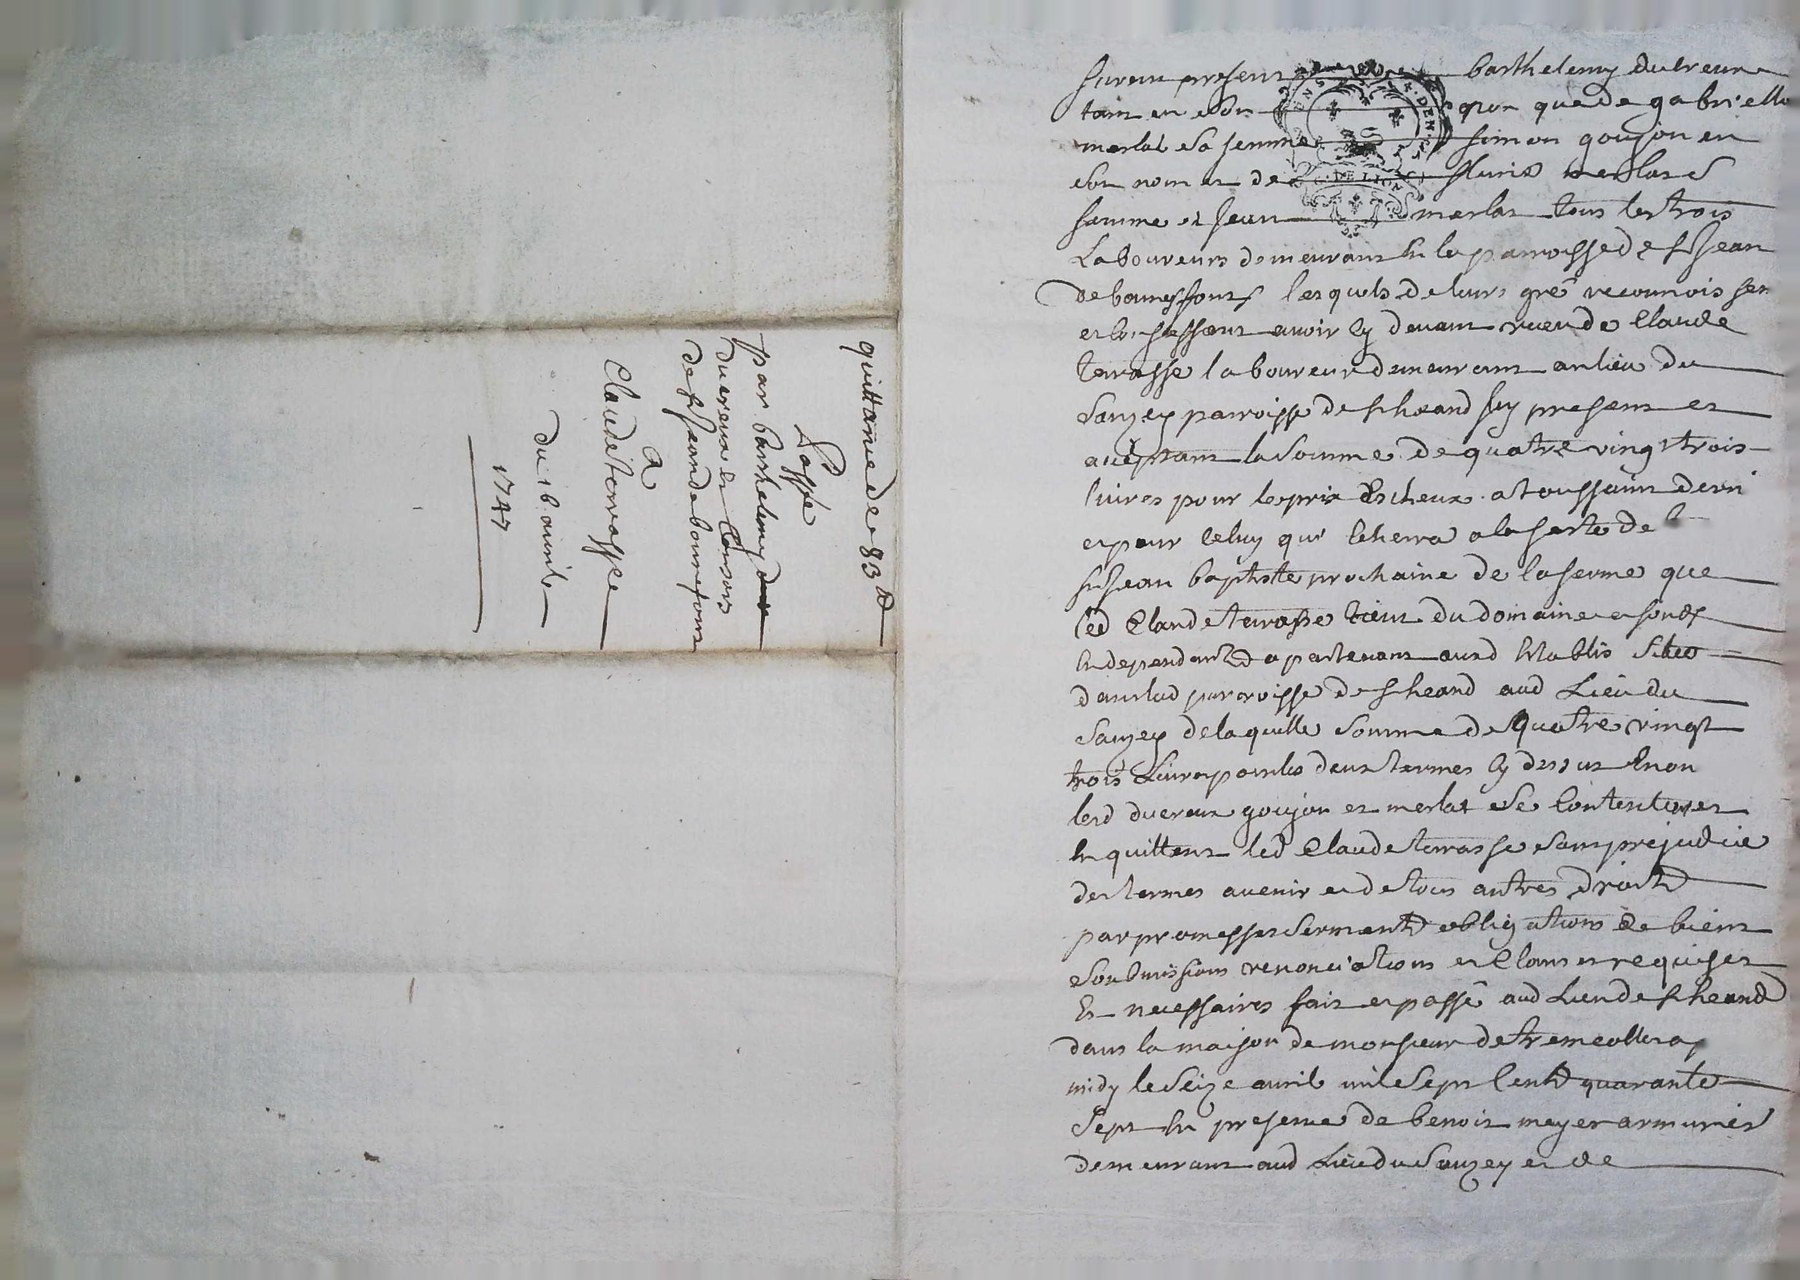 quittance de 83 ℔
passée
par barthelemy du
ducreux et Consors
de St Jean de bonnefons
a
Claude terrasse
du 16 avril
1747
furent presens barthelemy ducreux
tant en son que de gabrielle
merlat sa femme simon goujon en
son nom et de fleurie merlat s
femme et Jean merlat tous les trois
Laboureurs demeurans en la parroisse de St Jean
de bonnesfonts lesquels de leurs gré reconnoissen
et confessent avoir cy devant receu de Claude
terrasse laboureur demeurant au lieu du
Sauzey parroisse de St heand Icy present et
acceptant la somme de quatre vingt trois
livres pour le prix Escheux a toussaint derni
et pour celuy qui Echerra a la feste de
St Jean baptiste prochaine de la ferme que
led Claude terrasse tient du domaine et fonds
En dependants apartenant ausd Establis Scitué
dans lad parroisse de St heand aud Lieu du
Sauzey de laquelle somme de quatre vingt
trois Livres pour les deux termes cy dessus Enon
lesd ducreux goujon et merlat se Contentent et
En quittent led Claude terrasse sans prejudice
des termes avenir et de tous autres droits
par promesses serments obligations de biens
soubmissions renonciations et Clauses requises
Et necessaires fait et passé aud Lieu de St heand
dans la maison de monsieur de tremeolles ap
midy le Seize avril mil Sept Cents quarante
Sept En presence de benoit meyer armurier
demeurant aud Lieu du Sauzey et de